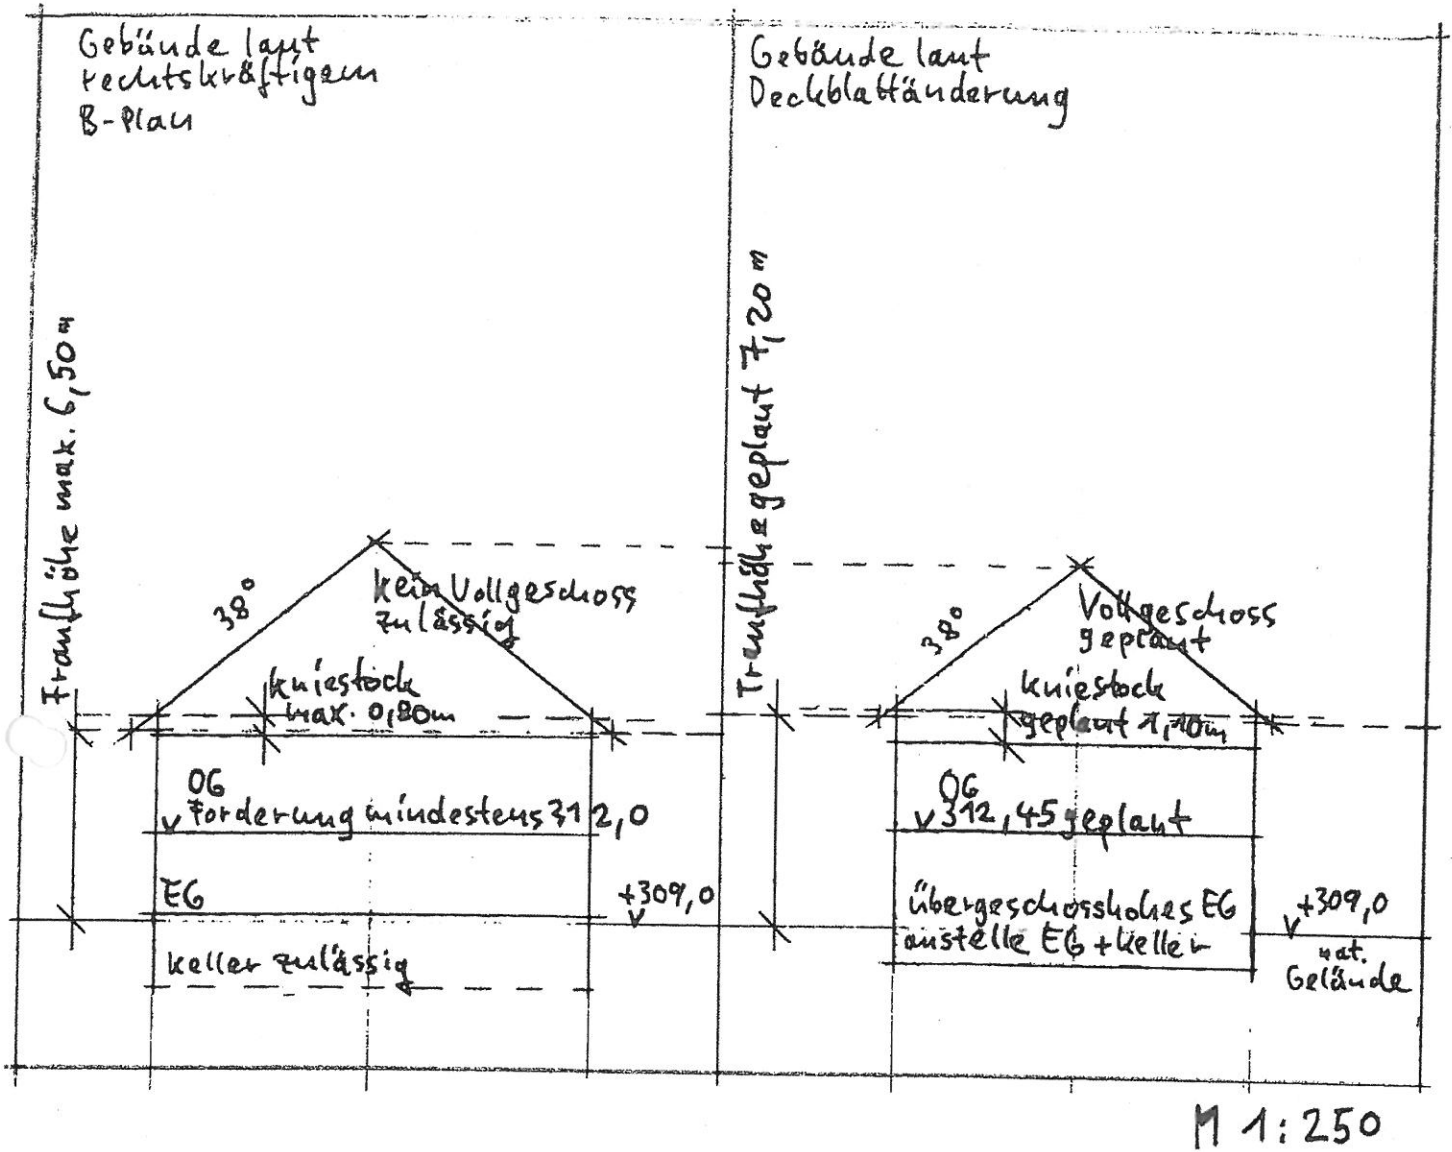 Gebäude laut
rechtskräftigem
B-Plan
Traufhöhe max. 6,50 m
38°
kein Vollgeschoss
zulässig
Kniestock
max. 0,80m
OG
Forderung mindestens 312,0
EG
+309,0
Keller zulässig
Gebäude laut
Deckblattänderung
Traufhöhe geplant 7,20 m
38°
Vollgeschoss
geplant
Kniestock
geplant 1,10m
OG
312,45 geplant
übergeschosshohes EG
anstelle EG + Keller
+309,0
nat.
Gelände
M 1:250